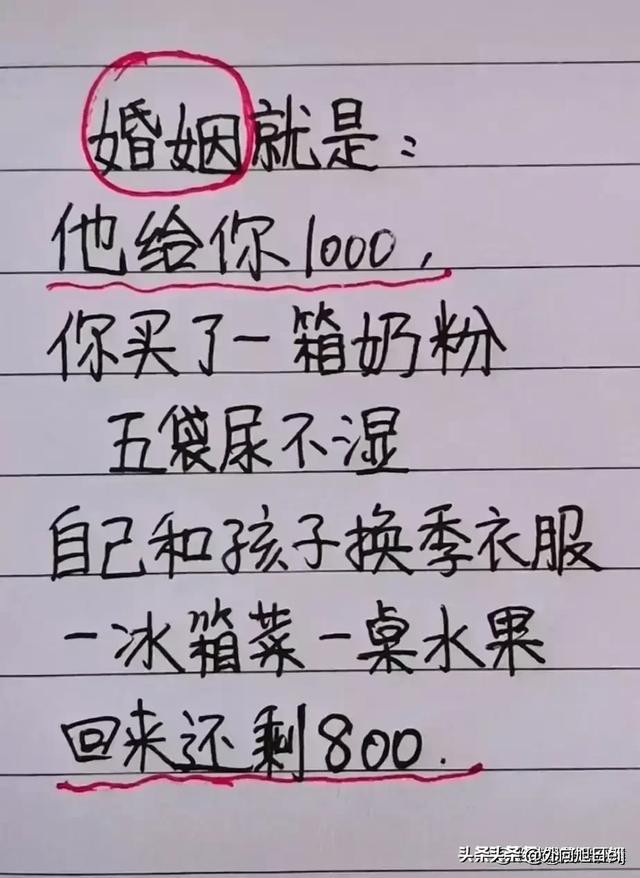 婚姻就是：
他给你1000，
你买了一箱奶粉
五袋尿不湿
自己和孩子换季衣服
一冰箱菜一桌水果
回来还剩800.
头条